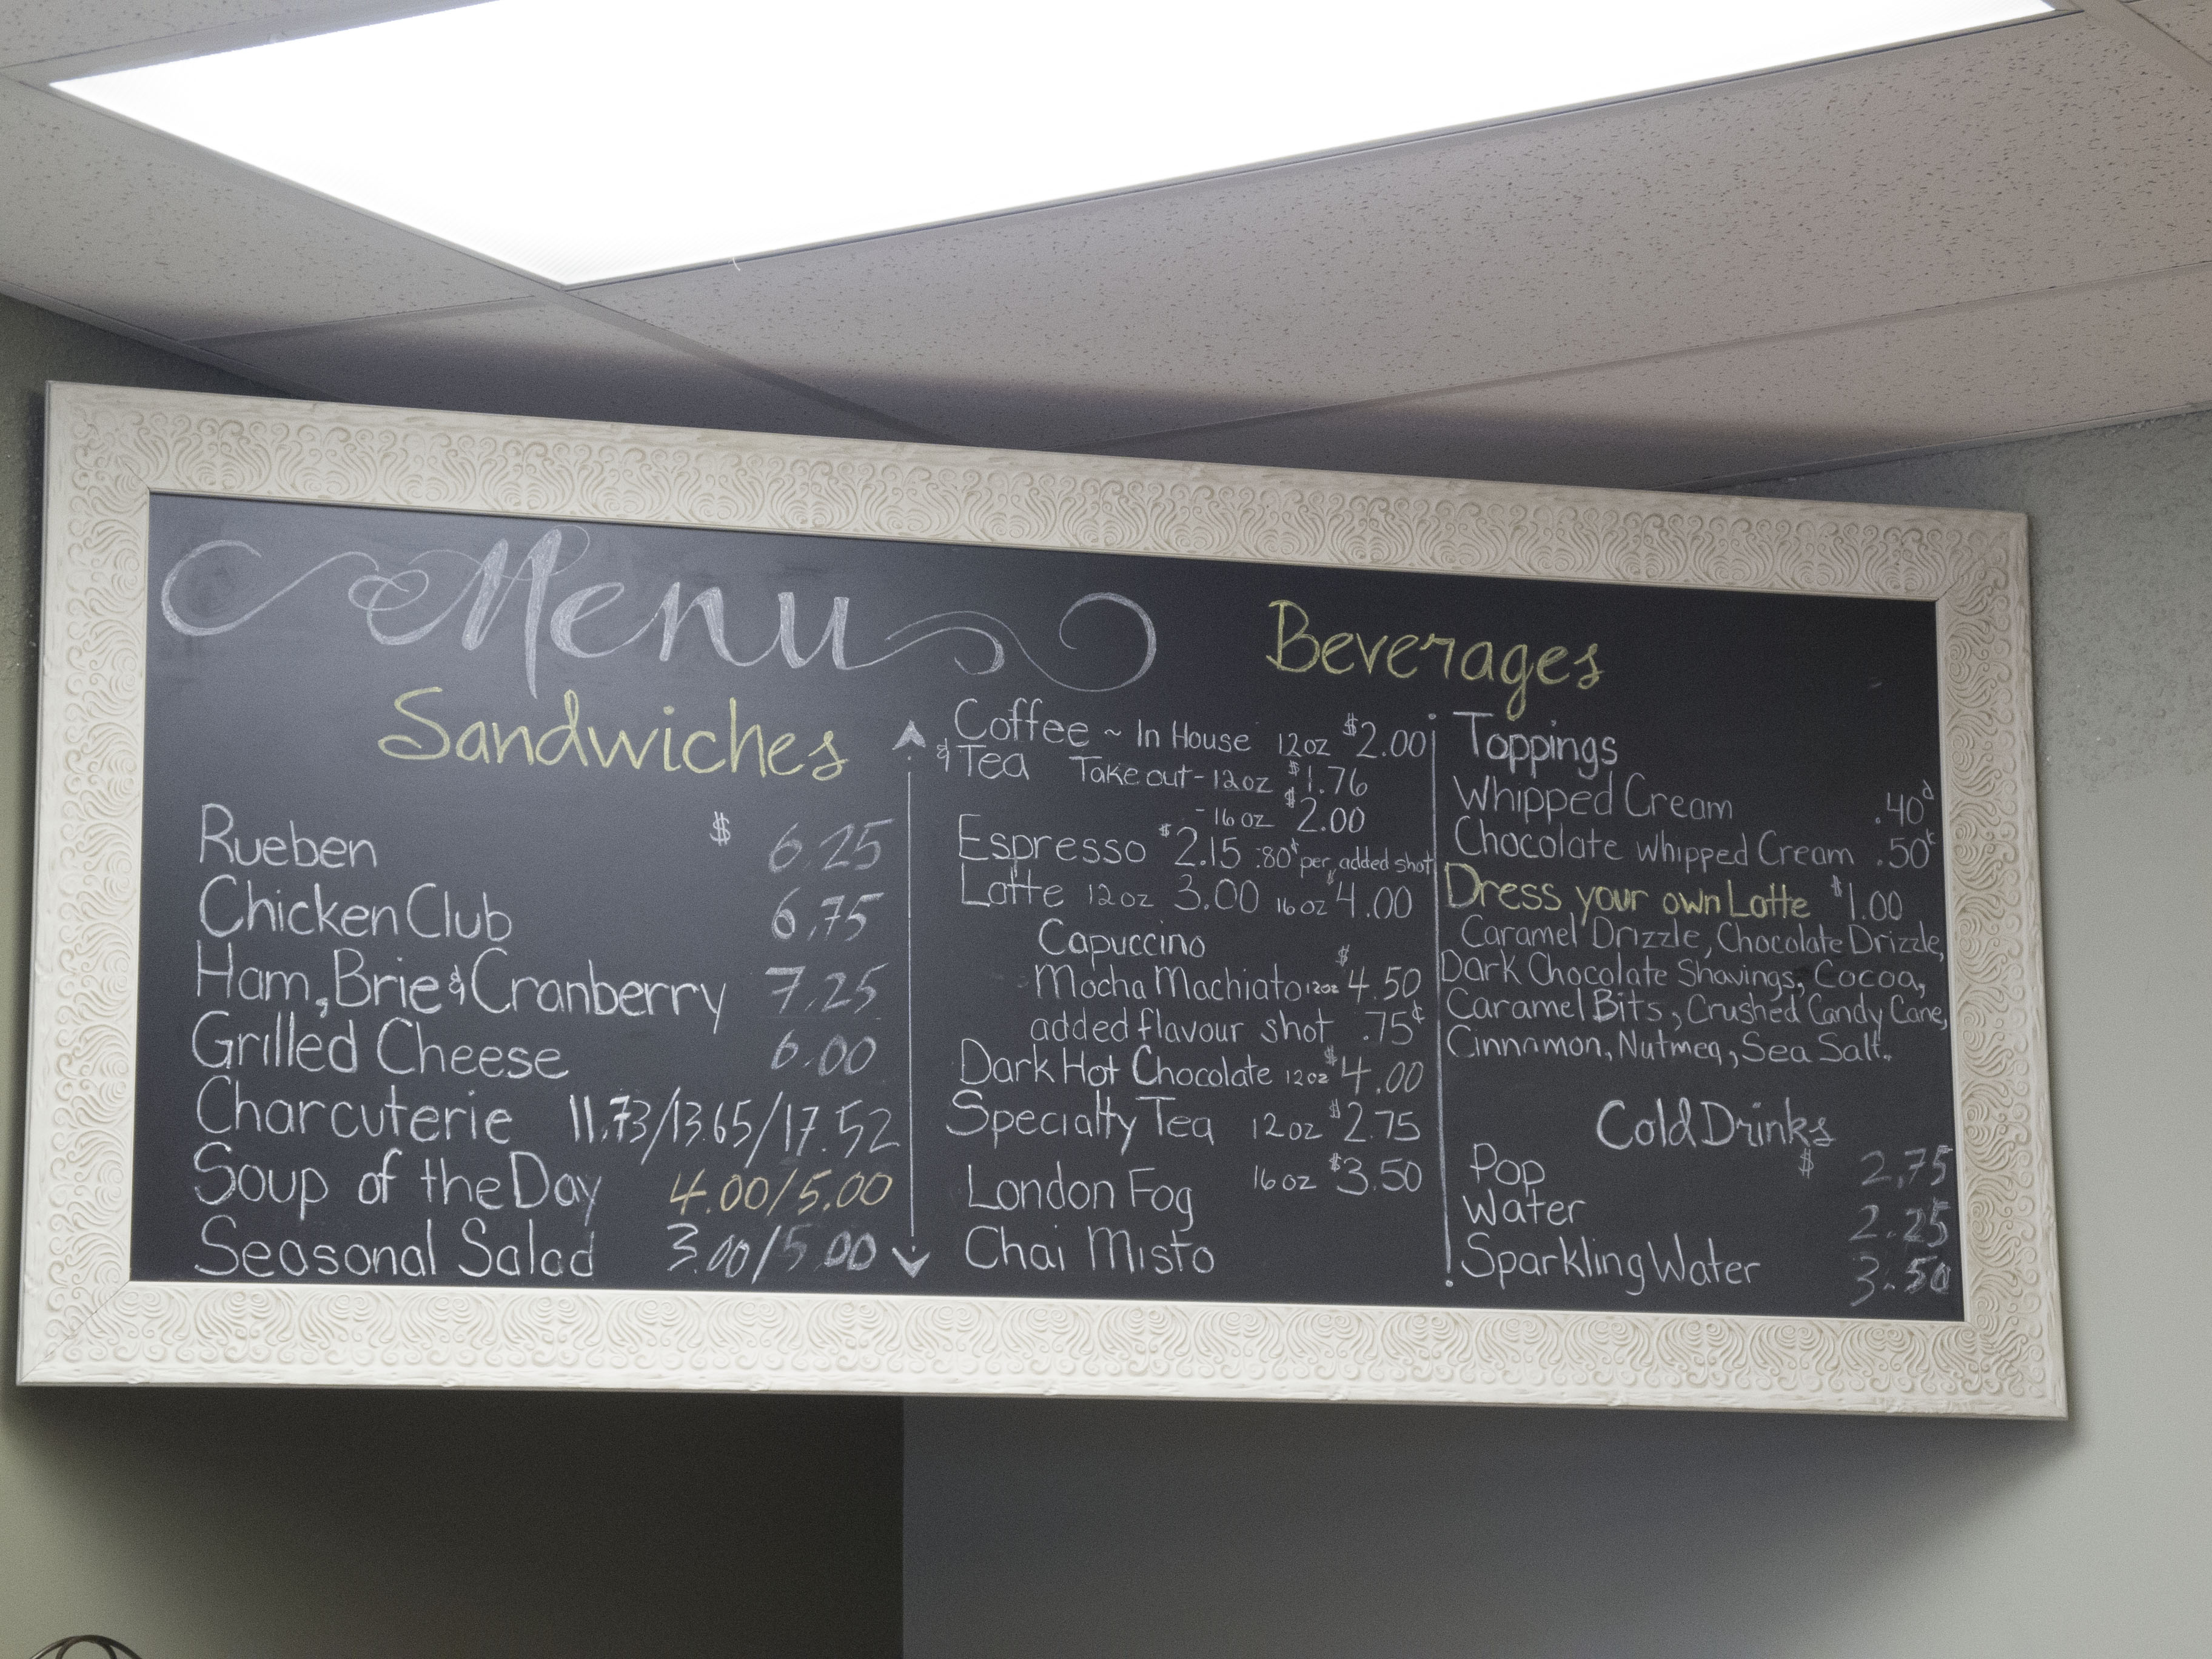 Menu
Sandwiches
Rueben $ 6.25
Chicken Club 6.75
Ham, Brie & Cranberry 7.25
Grilled Cheese 6.00
Charcuterie 11.73/13.65/17.52
Soup of the Day 4.00/5.00
Seasonal Salad 3.00/5.00
Beverages
Coffee ~ In House 12oz $2.00
& Tea Take out - 12oz $1.76
- 16oz $2.00
Espresso $2.15 .80¢ per added shot
Latte 12oz 3.00 16oz $4.00
Capuccino
Mocha Machiato 12oz $4.50
added flavour shot .75¢
Dark Hot Chocolate 12oz $4.00
Specialty Tea 12oz $2.75
London Fog 16oz $3.50
Chai Misto
Toppings
Whipped Cream .40¢
Chocolate Whipped Cream .50¢
Dress your own Latte $1.00
Caramel Drizzle, Chocolate Drizzle,
Dark Chocolate Shavings, Cocoa,
Caramel Bits, Crushed Candy Cane,
Cinnamon, Nutmeg, Sea Salt.
Cold Drinks
Pop $ 2.75
Water 2.25
Sparkling Water 3.50